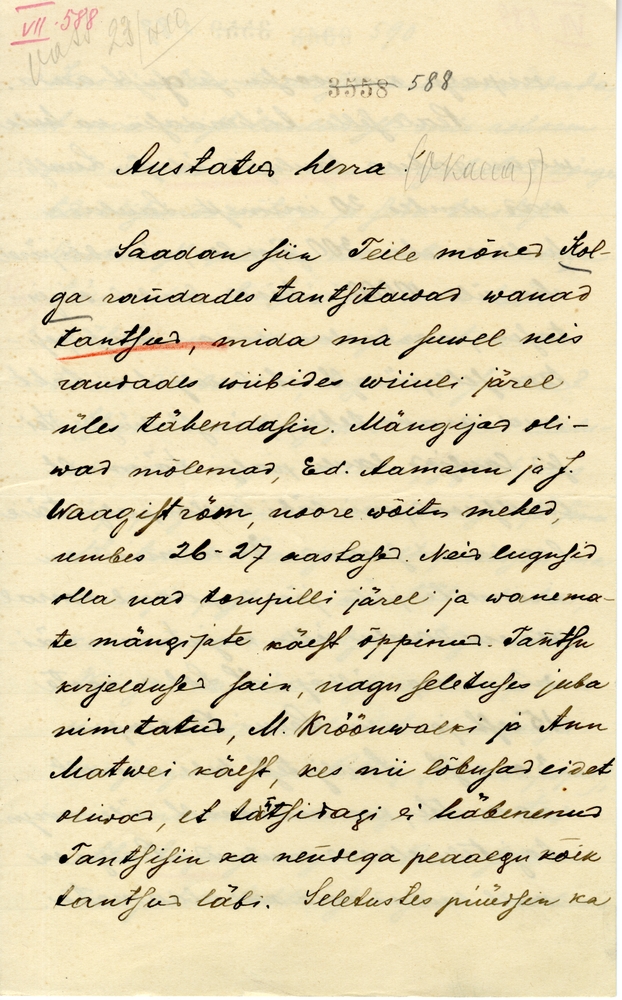 VII. 588
3558 588
Austatud herra (O Kallas)
Saadan siin Teile mõned Kol-
ga randades tantsitawad wanad
tantsud, mida ma suwel neis
randades wiibides wiiuli järel
üles tähendasin. Mängijad oli-
wad mõlemad, Ed. Aamann ja J.
Waagiström, noore wõitu mehed,
umbes 26-27 aastased. Neid lugusid
olla nad torupilli järel ja wanema-
te mängijate käest õppinud. Tantsu
kirjeldused sain, nagu seletuses juba
nimetatud, M. Kröönwalki ja Ann
Matwei käest, kes nii lõbusad eidet
oliwad, et tätsidagi ei häbenenud
Tantsisin ka nendega peaaegu kõik
tantsud läbi. Seletustes püüdsin ka